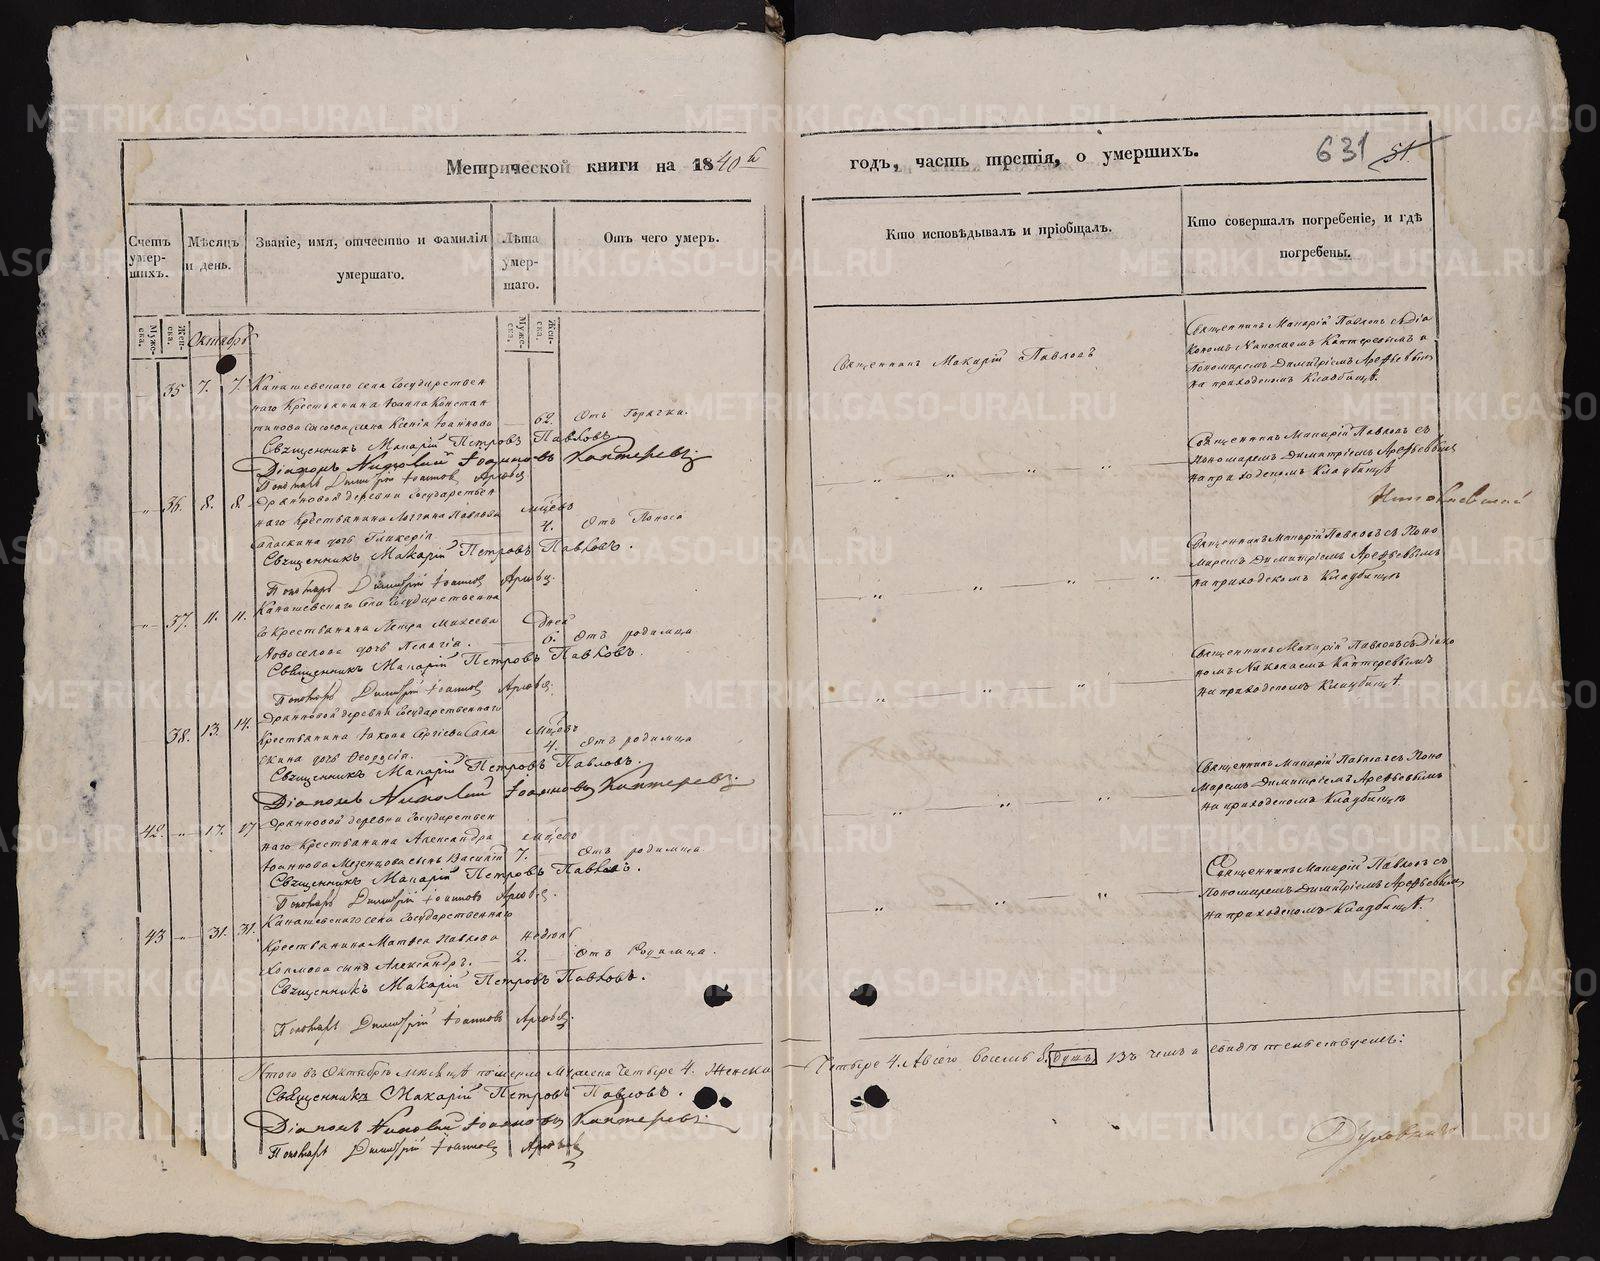 Метрической книги на 1840й
годъ, часть третія, о умершихъ.
631
51
Счетъ умер-
шихъ.
Мѣсяцъ
и день.
Званіе, имя, отчество и фамилія
умершаго.
Лѣта
умер-
шаго.
Отъ чего умеръ.
Кто исповѣдывалъ и пріобщалъ.
Кто совершалъ погребеніе, и гдѣ
погребены.
Муже-
ска.
Жен-
ска.
Октябрь
Муже-
ска.
Жен-
ска.
35 7. 7. Канашевскаго села Государствен
наго Крестьянина Іоанна Констан
тинова жена Ксенія Іоаннова 62. Отъ Горячки.
Священникъ Макарій Петровъ Павловъ
Діаконъ Николай Іоанновъ Каптеревъ
Пономарь Димитрій Іоанновъ
Священникъ Макарій Павловъ
Священникъ Макарій Павловъ съ Діа
кономъ Николаемъ Каптеревымъ и
Пономаремъ Димитріемъ Арефьевымъ
на приходскомъ Кладбищѣ.
36. 8. 8. деревни Государствен
наго Крестьянина Павлова мѣсяцъ
дочь Гликерія 4. Отъ Поноса
Священникъ Макарій Петровъ Павловъ.
Пономарь Димитрій Іоанновъ
Священникъ Макарій Павловъ съ
Пономаремъ Димитріемъ Арефьевымъ
на приходскомъ Кладбищѣ
37. 11. 11. Канашевскаго села Государственна
го Крестьянина Петра Михеева Дней
Новоселова дочь Пелагія. 6. Отъ родимца
Священникъ Макарій Петровъ Павловъ.
Пономарь Димитрій Іоанновъ
Священникъ Макарій Павловъ съ Поно
маремъ Димитріемъ Арефьевымъ
на приходскомъ Кладбищѣ
38. 13. 14. деревни Государственнаго
Крестьянина Іакова Сергіева
дочь Ѳеодосія. 4. Отъ родимца
Священникъ Макарій Петровъ Павловъ.
Діаконъ Николай Іоанновъ Каптеревъ.
Священникъ Макарій Павловъ съ Діако
номъ Николаемъ Каптеревымъ
на приходскомъ Кладбищѣ.
42. 17. 17 деревни Государствен
наго Крестьянина Александра
Іоаннова Мезенцова сынъ Василій 7. Отъ родимца
Священникъ Макарій Петровъ Павловъ.
Пономарь Димитрій Іоанновъ
Священникъ Макарій Павловъ съ Поно
маремъ Димитріемъ Арефьевымъ
на приходскомъ Кладбищѣ
43 31. 31. Канашевскаго села Государственнаго
Крестьянина Матвея Павлова недель
сынъ Александръ. 2. Отъ Родимца.
Священникъ Макарій Петровъ Павловъ.
Пономарь Димитрій Іоанновъ
Священникъ Макарій Павловъ съ
Пономаремъ Димитріемъ Арефьевымъ
на приходскомъ Кладбищѣ.
Итого въ Октябрѣ мѣсяцѣ померло Мужеска Четыре 4. Женска
Четыре 4. А всего восемь 8. душъ въ чемъ и свидѣтельствуемъ:
Священникъ Макарій Петровъ Павловъ.
Діаконъ Николай Іоанновъ Каптеревъ
Пономарь Димитрій Іоанновъ
METRIKI.GASO-URAL.RU